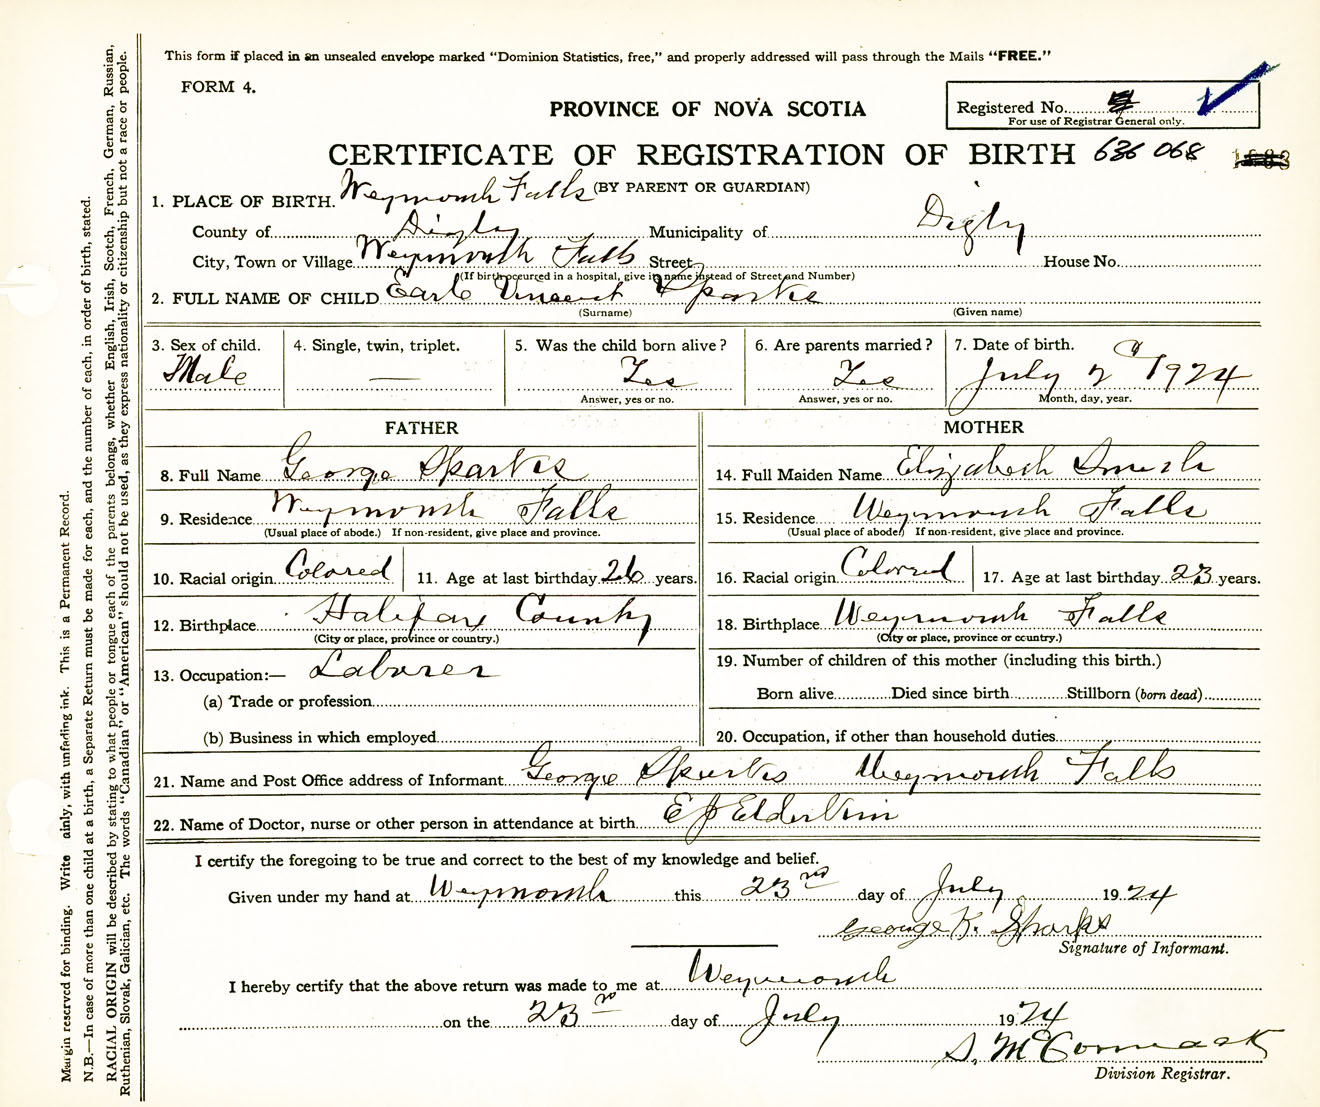 This form if placed in an unsealed envelope marked "Dominion Statistics, free," and properly addressed will pass through the Mails "FREE."
FORM 4.
PROVINCE OF NOVA SCOTIA
Registered No.
For use of Registrar General only.
CERTIFICATE OF REGISTRATION OF BIRTH 636 068
(BY PARENT OR GUARDIAN)
1. PLACE OF BIRTH. Weymouth Falls
County of Digby Municipality of Digby
City, Town or Village Weymouth Falls Street House No.
(If birth occurred in a hospital, give its name instead of Street and Number)
2. FULL NAME OF CHILD Earle Vincent Sparks
(Surname) (Given name)
3. Sex of child. 4. Single, twin, triplet. 5. Was the child born alive? 6. Are parents married? 7. Date of birth.
Male — Yes Yes July 2 1924
Answer, yes or no. Answer, yes or no. Month, day, year.
FATHER MOTHER
8. Full Name George Sparks 14. Full Maiden Name Elizabeth Smith
9. Residence Weymouth Falls 15. Residence Weymouth Falls
(Usual place of abode.) If non-resident, give place and province. (Usual place of abode) If non-resident, give place and province.
10. Racial origin Colored 11. Age at last birthday 26 years. 16. Racial origin Colored 17. Age at last birthday 23 years.
12. Birthplace Halifax County 18. Birthplace Weymouth Falls
(City or place, province or country.) (City or place, province or country.)
13. Occupation:— Laborer 19. Number of children of this mother (including this birth.)
(a) Trade or profession Born alive Died since birth Stillborn (born dead)
(b) Business in which employed 20. Occupation, if other than household duties
21. Name and Post Office address of Informant George Sparks Weymouth Falls
22. Name of Doctor, nurse or other person in attendance at birth E J Elderkin
I certify the foregoing to be true and correct to the best of my knowledge and belief.
Given under my hand at Weymouth this 23rd day of July 1924
George K. Sparks
Signature of Informant.
I hereby certify that the above return was made to me at Weymouth
on the 23rd day of July 1924
S. McCormack
Division Registrar.
Margin reserved for binding. Write ainly, with unfading ink. This is a Permanent Record.
N.B.—In case of more than one child at a birth, a Separate Return must be made for each, and the number of each, in order of birth, stated.
RACIAL ORIGIN will be described by stating to what people or tongue each of the parents belongs, whether English, Irish, Scotch, French, German, Russian,
Ruthenian, Slovak, Galician, etc. The words "Canadian" or "American" should not be used, as they express nationality or citizenship but not a race or people.